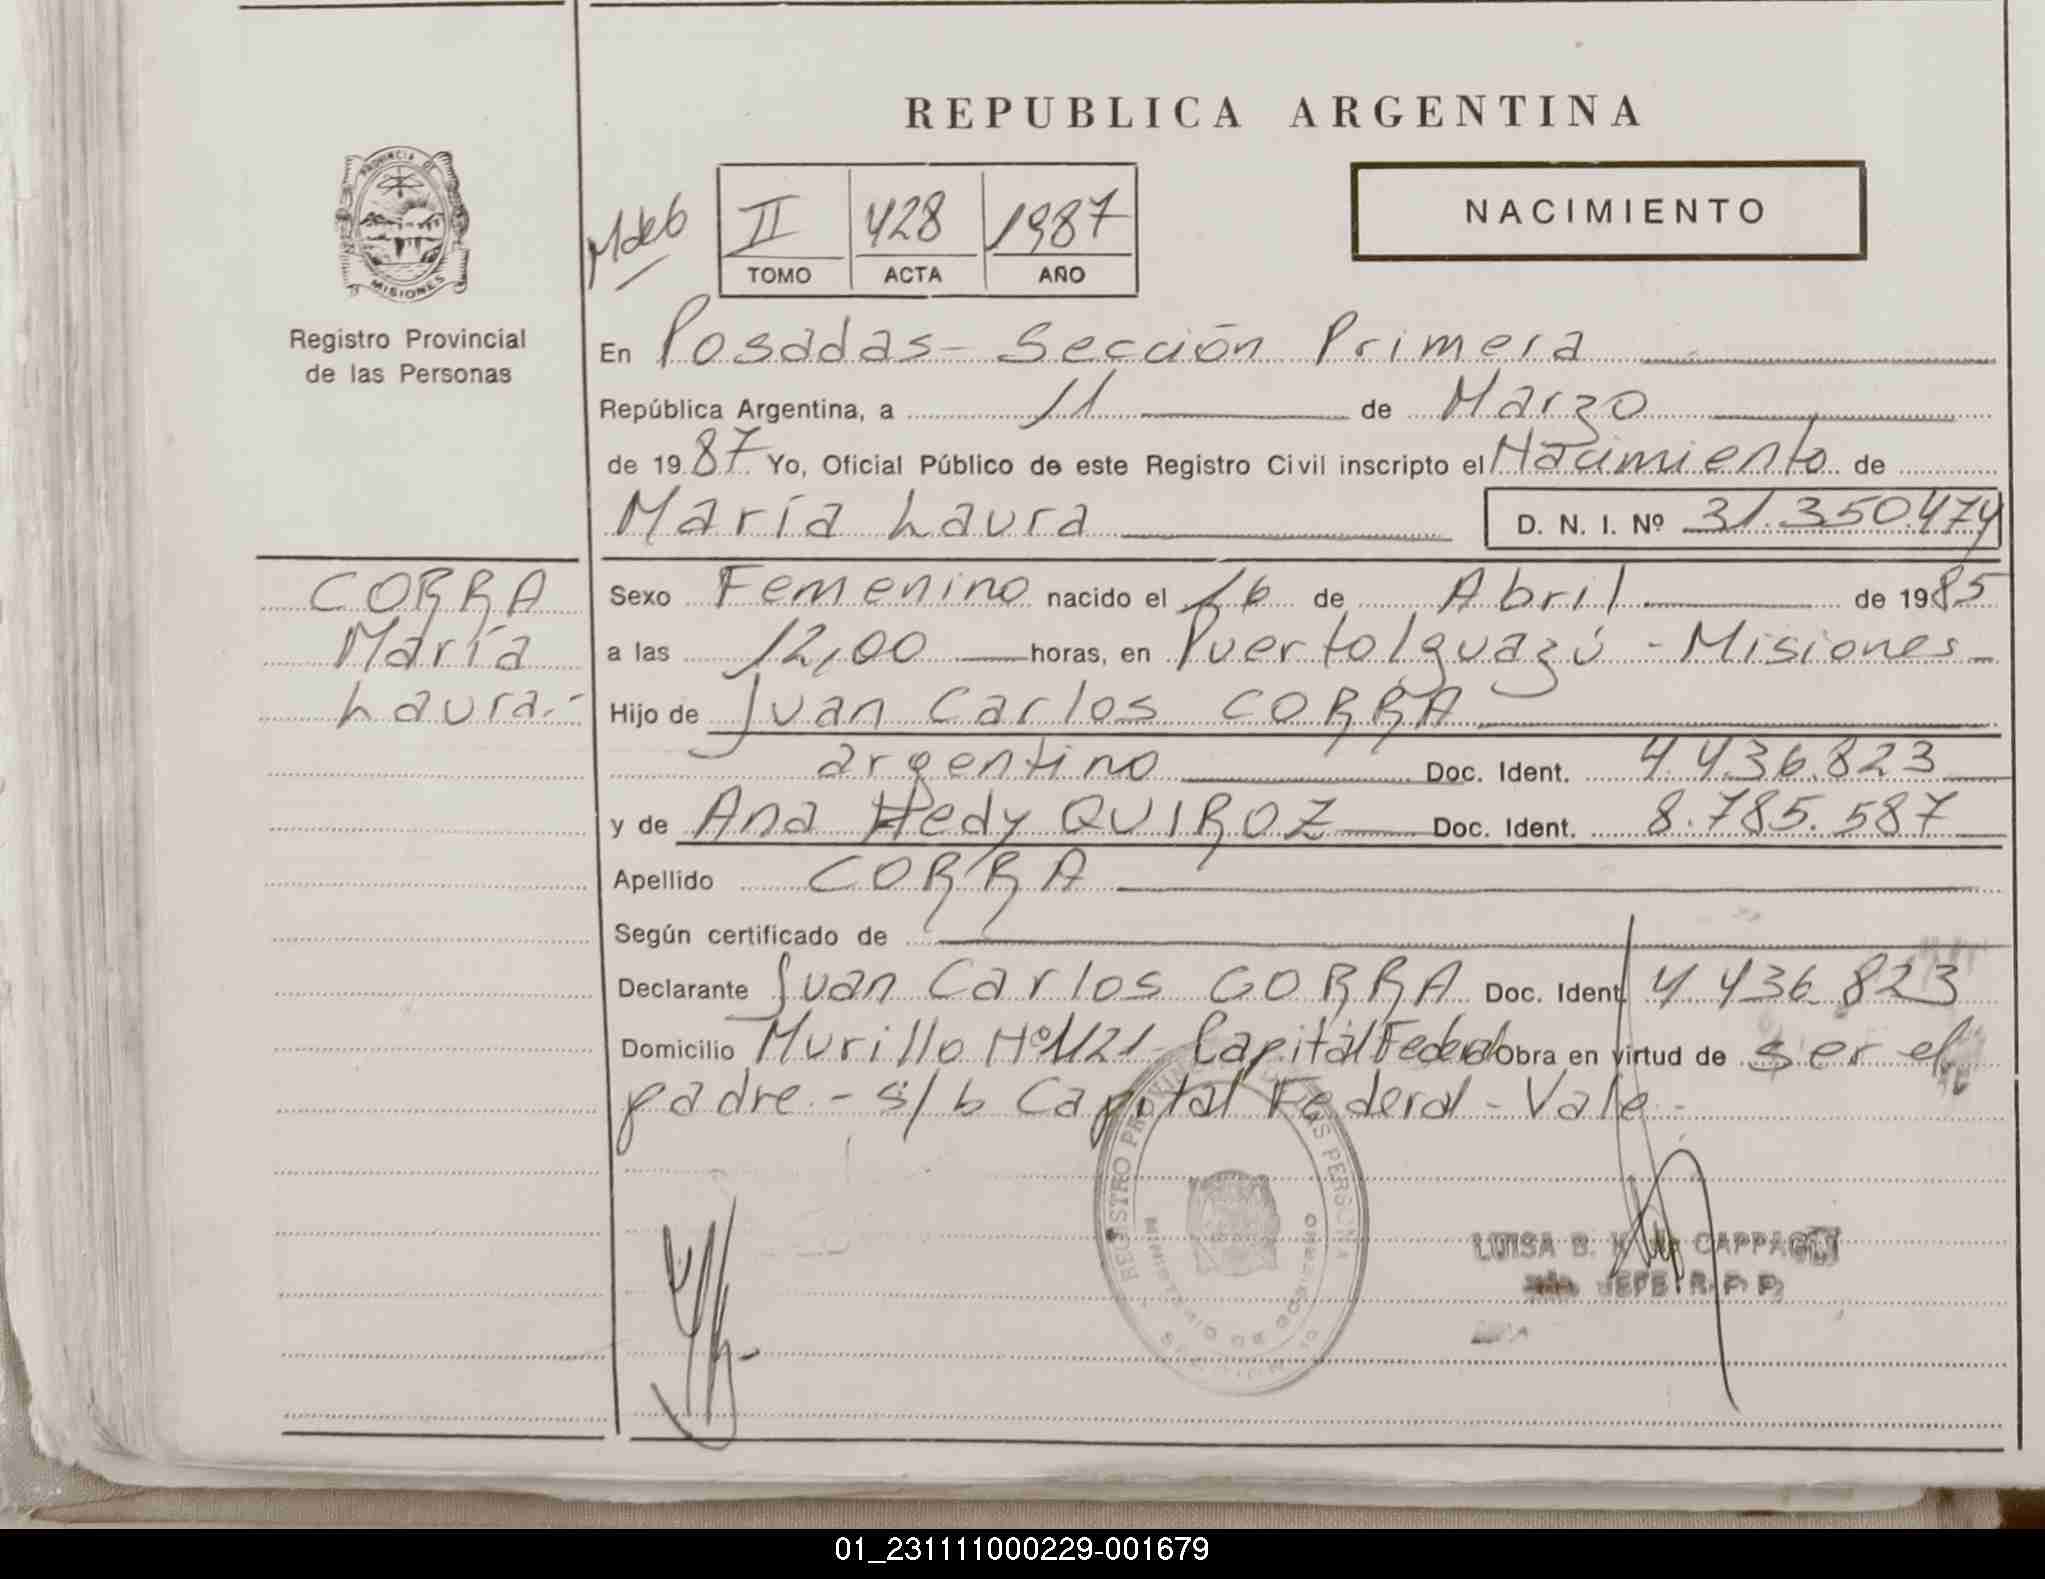 REPUBLICA ARGENTINA
PROVINCIA DE
MISIONES
Registro Provincial
de las Personas
II 428 1987
TOMO ACTA AÑO
NACIMIENTO
En Posadas - Sección Primera
República Argentina, a 11 de Marzo
de 1987 Yo, Oficial Público de este Registro Civil inscripto el Nacimiento de
María Laura D. N. I. Nº 31.350.474
CORRA
María
Laura.-
Sexo Femenino nacido el 16 de Abril de 1985
a las 12,00 horas, en Puerto Iguazú - Misiones
Hijo de Juan Carlos CORRA
argentino Doc. Ident. 4.436.823
y de Ana Hedy QUIROZ Doc. Ident. 8.785.587
Apellido CORRA
Según certificado de
Declarante Juan Carlos CORRA Doc. Ident. 4.436.823
Domicilio Murillo Nº 1121 - Capital Federal Obra en virtud de ser el
padre - s/b Capital Federal - Vale -
REGISTRO PROVINCIAL DE LAS PERSONAS
MINISTERIO DE GOBIERNO
LUISA B. CAPPAGLI
JEFE R. P. P.
01_231111000229-001679